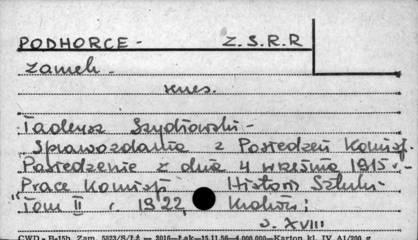 PODHORCE - Z.S.R.R
zamek.
renes.
Tadeusz Szydłowski -
Sprawozdania z Posiedzeń Komisj.
Posiedzenie z dnia 4 września 1915. -
Prace Komisji Historii Sztuki -
"Tom II r. 1922, Kraków;
s. XVIII
CWD - B-15b, Zam. 5823/S/Łż — 3016 — Łak — 15.11.56 — 4.000.000 — Karton kl. IV, A1/200 g.